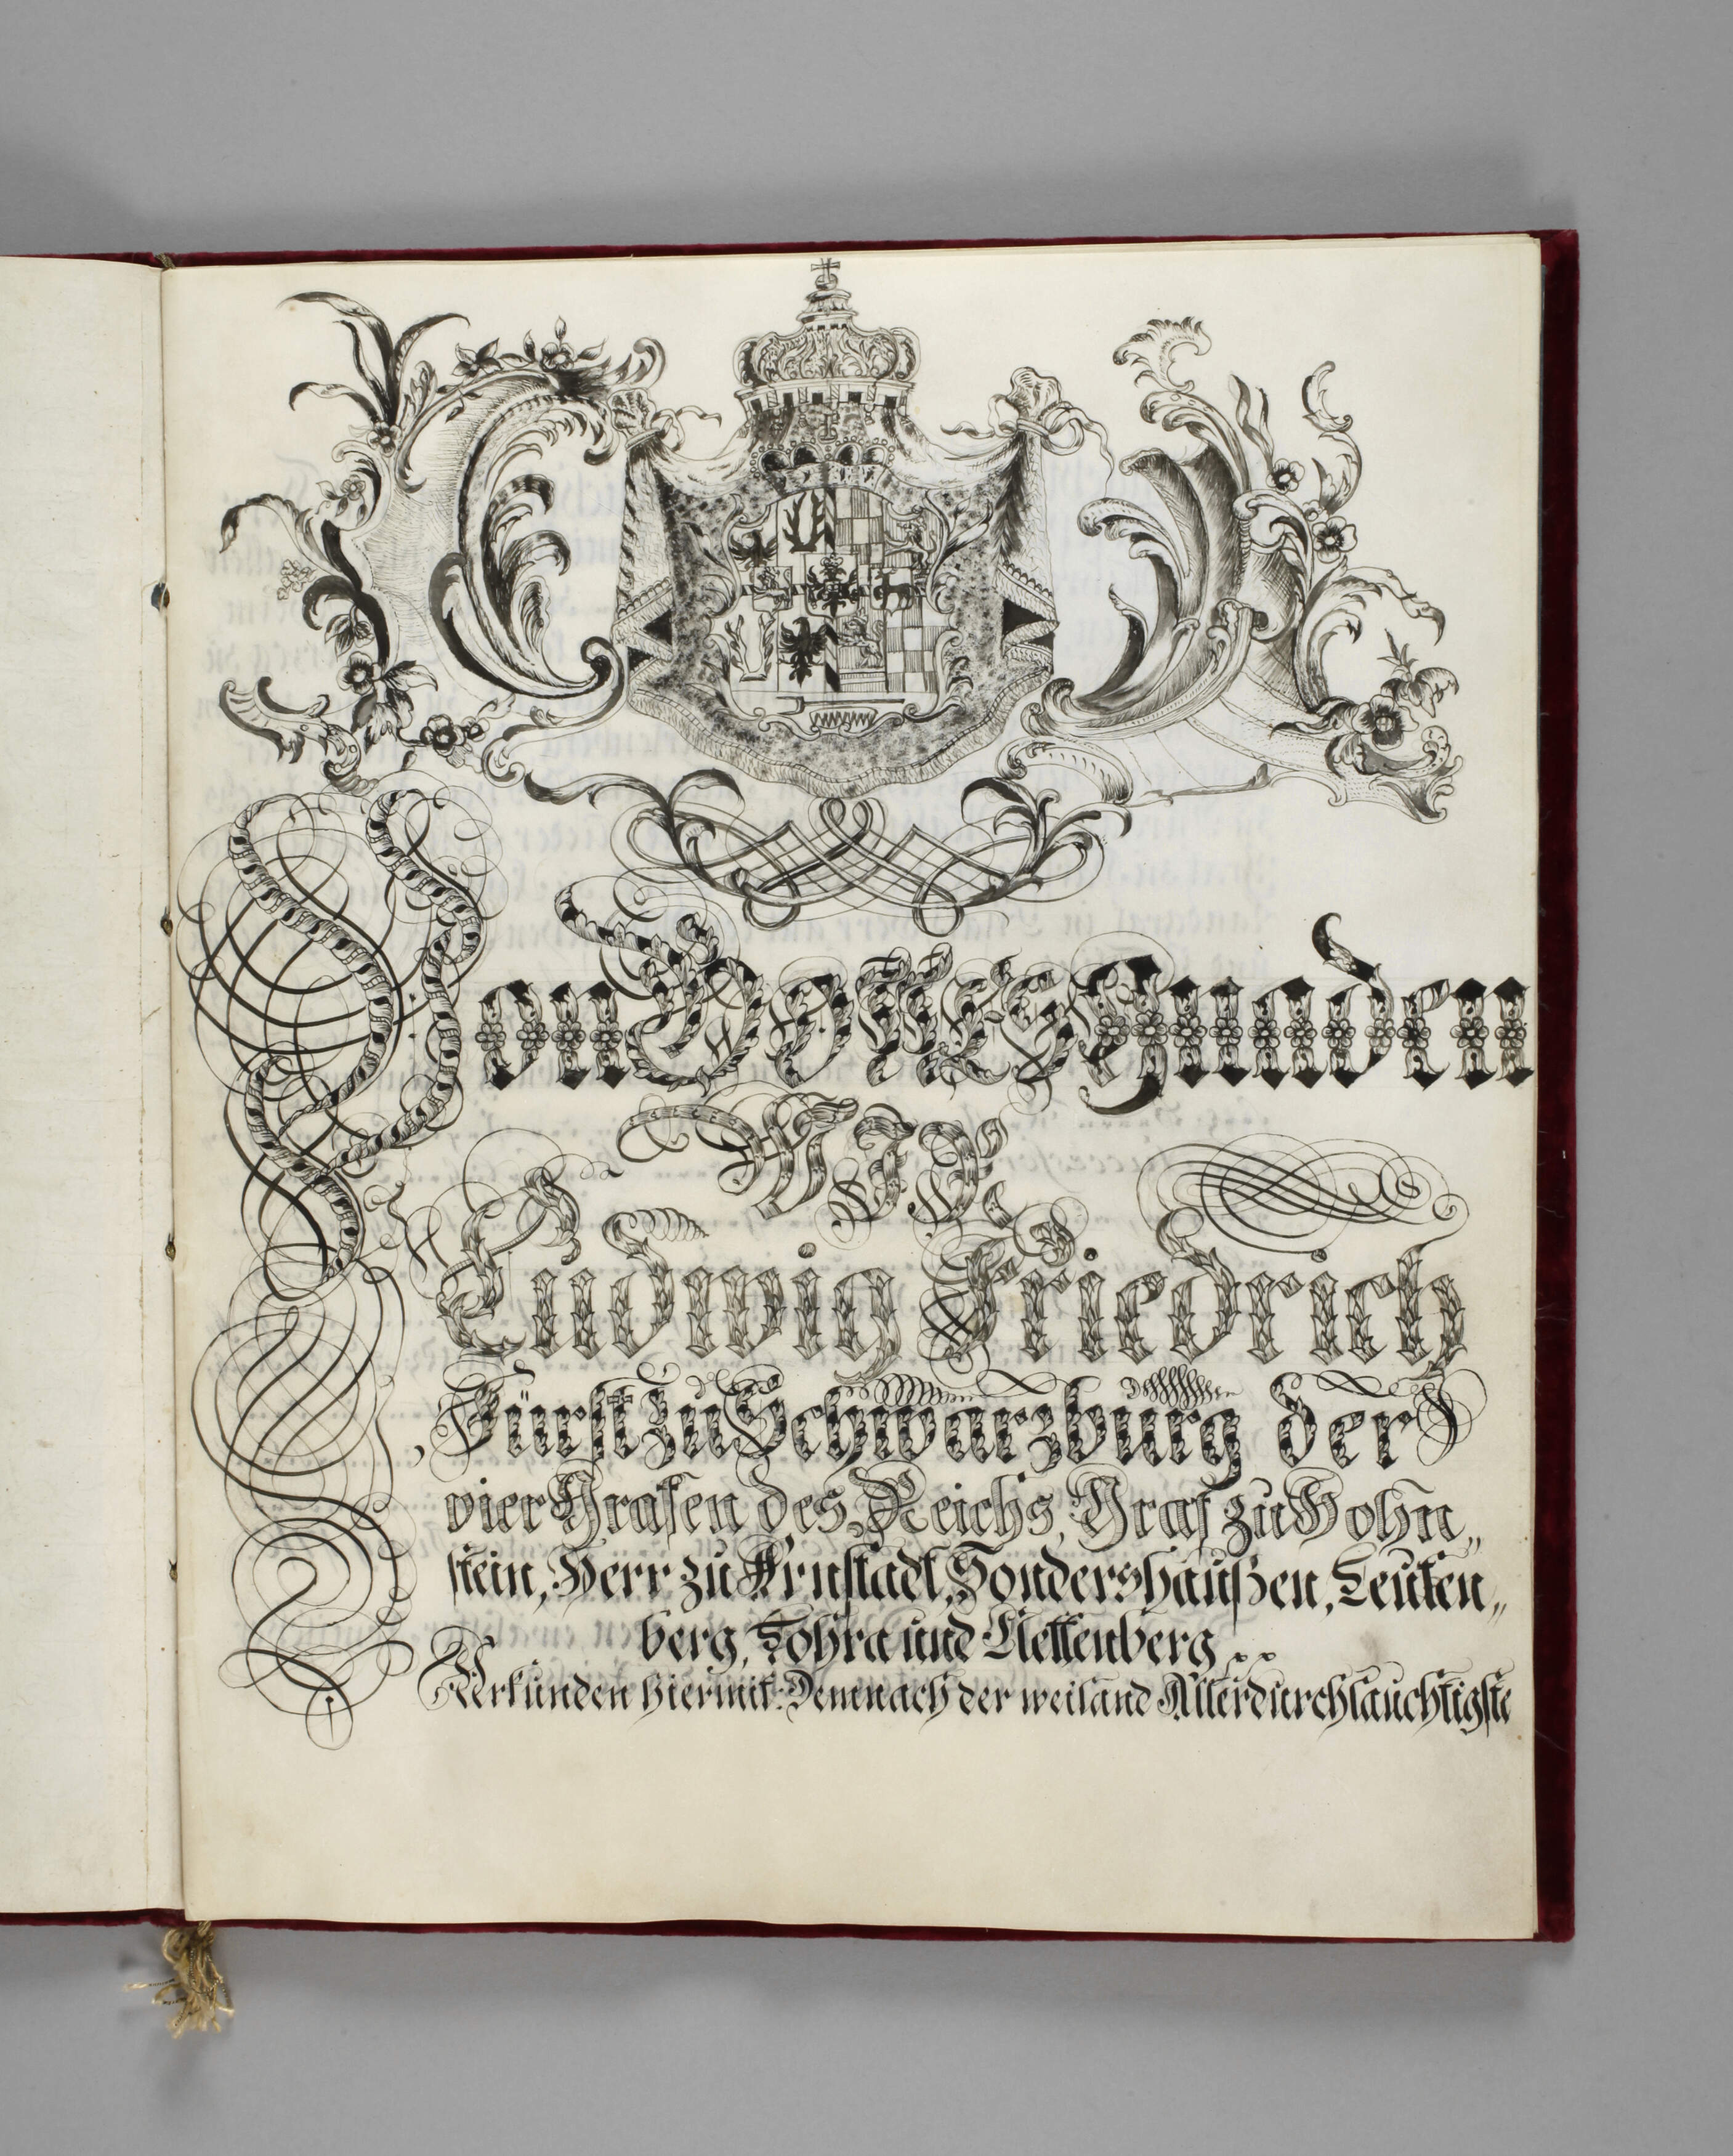 Von GOTTES Gnaden
WIR
Ludwig Friedrich
Fürst zu Schwarzburg der
vier Grafen des Reichs, Graf zu Hohn„
stein, Herr zu Arnstadt, Sondershaußen, Leuten„
berg, Lohra und Klettenberg
Verkünden hiermit: Demnach der weiland Allerdurchlauchtigste